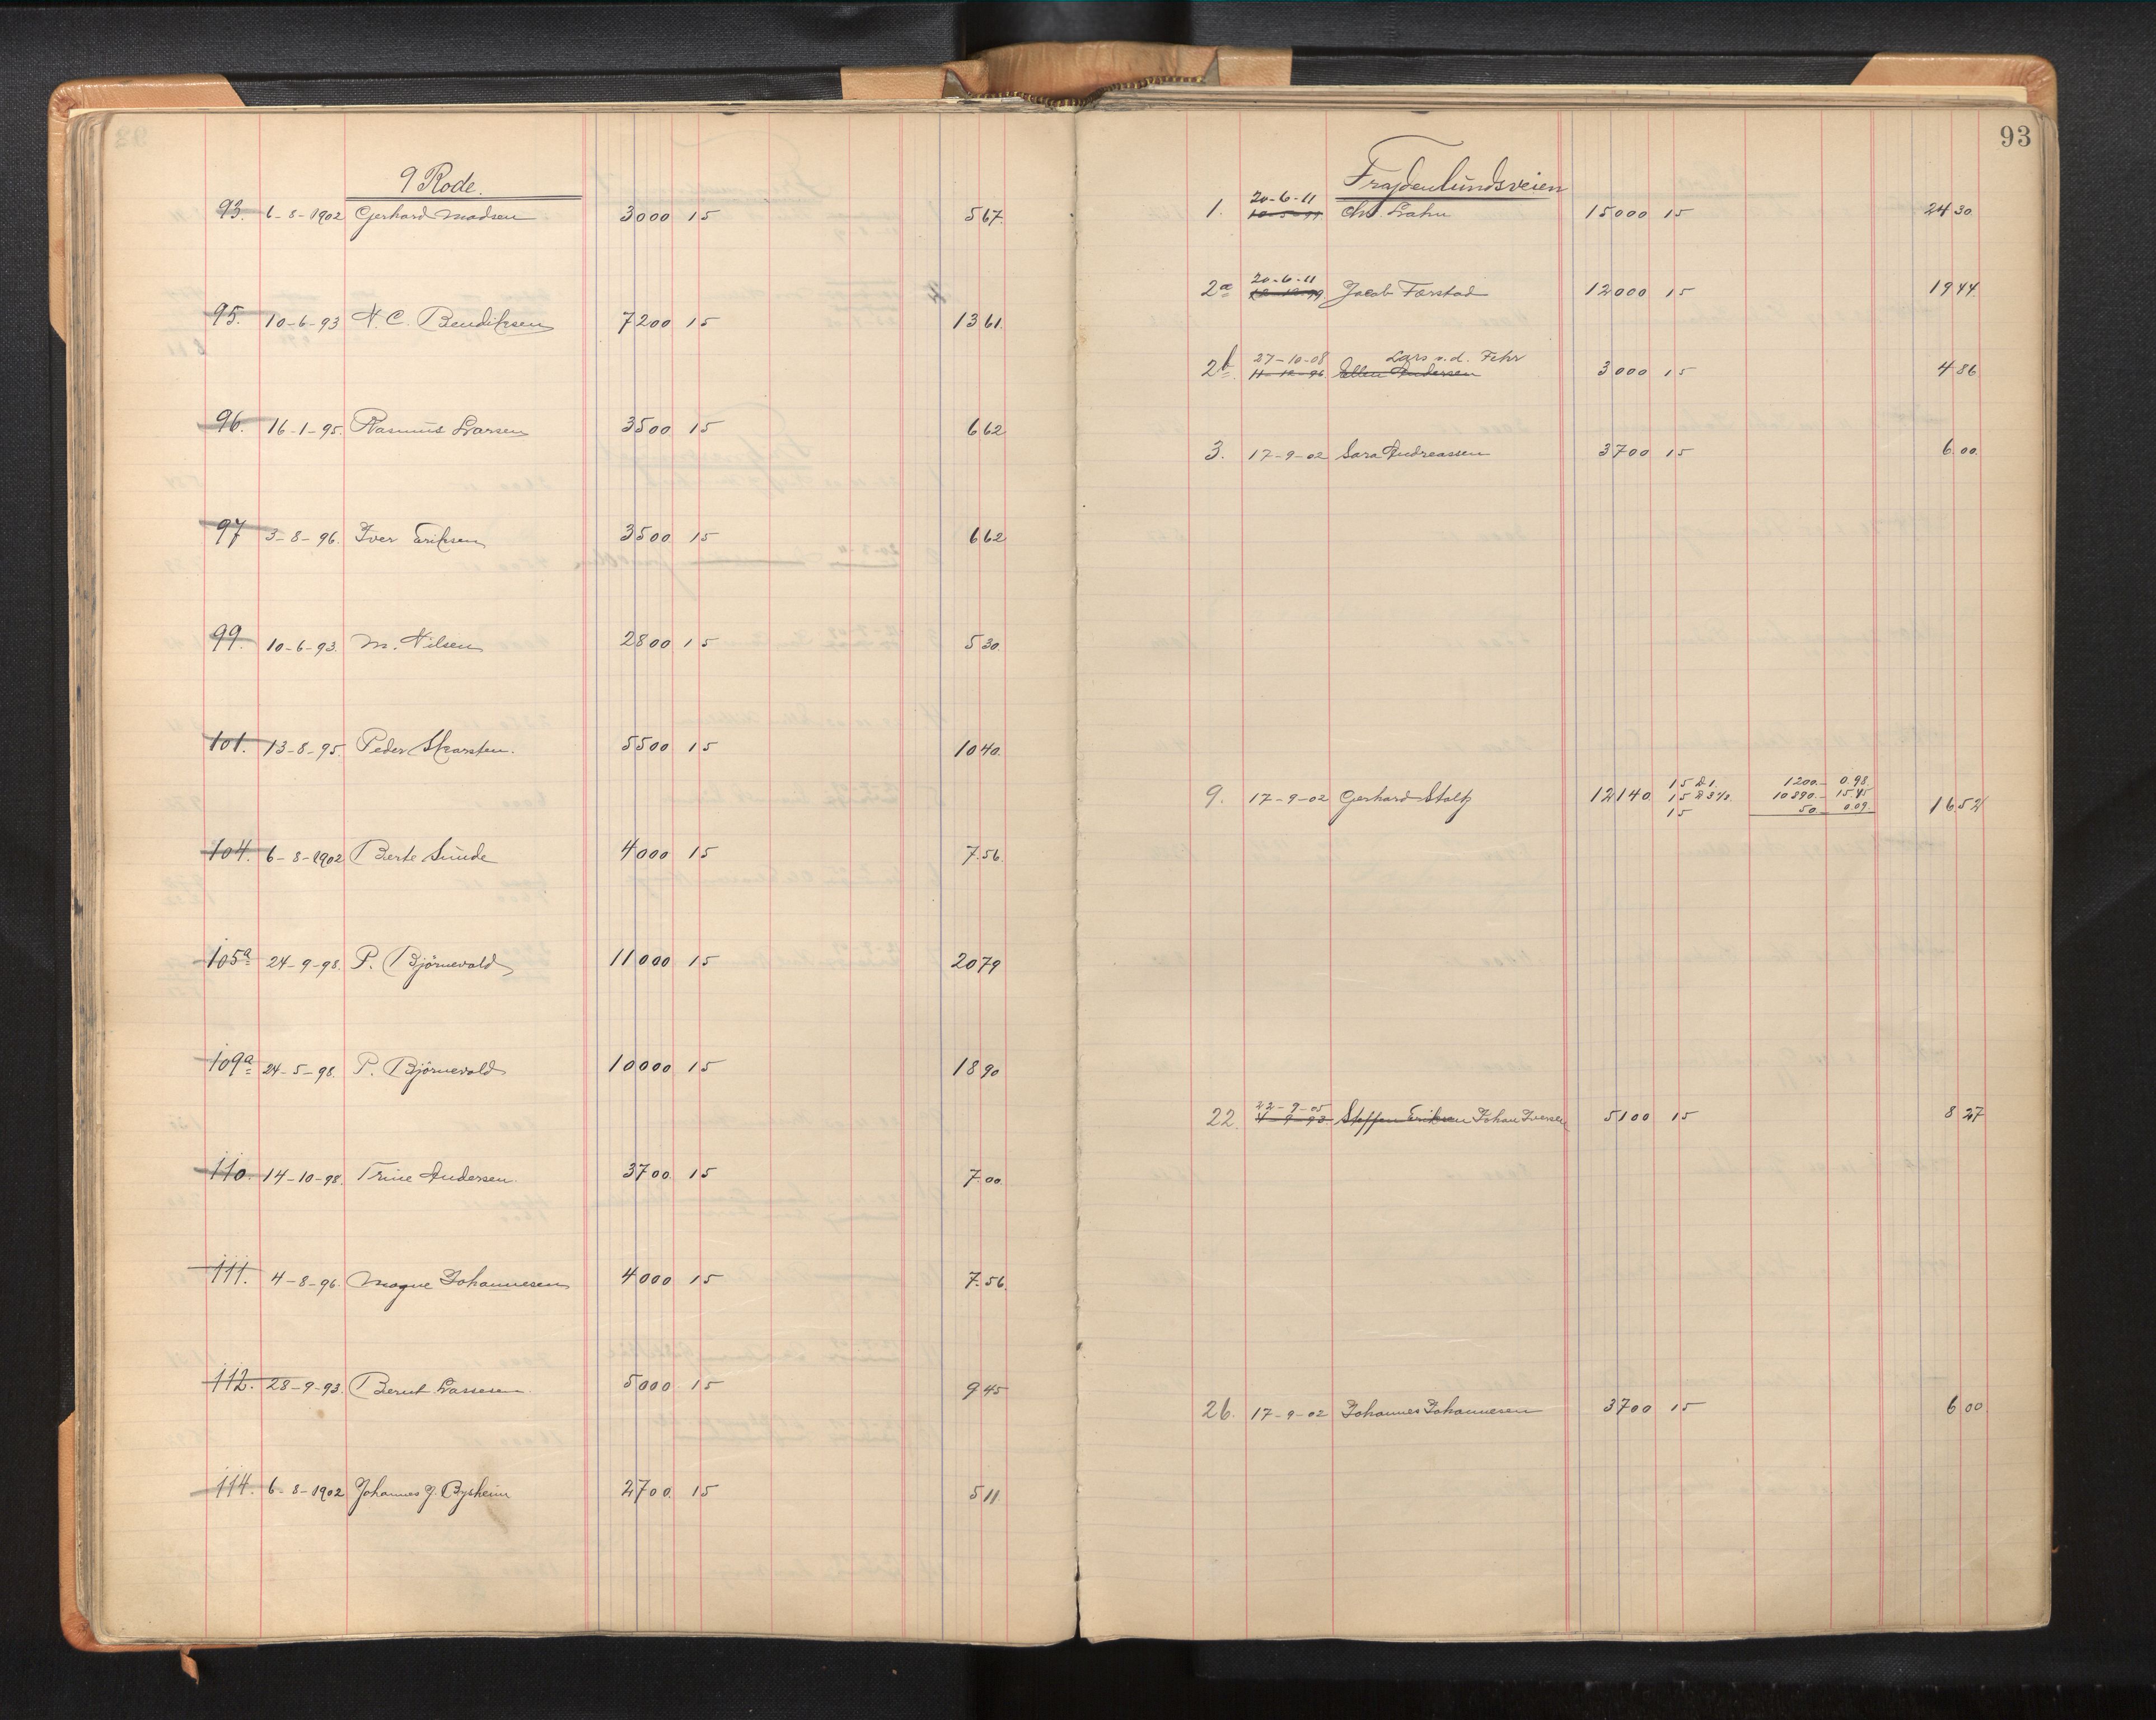 9 Rode.
93. 6-8-1902 Gerhard Madsen 3000 15 567.
95. 10-6-93 N. C. Bendiksen 7200 15 1361.
96. 16-1-95. Rasmus Larsen 3500 15 662
97 3-8-96. Iver Eriksen 3500 15 662
99. 10-6-93. M. Nilsen 2800 15 530.
101. 13-8-95. Peder Skarsten. 5500 15 1040.
104. 6-8-1902 Berte Sunde 4000 15 7.56.
105a 24-9-98. P. Björnevold 11000 15 2079
109a 24-5-98. P. Björnevold 10000 15 1890
110. 14-10-98. Trine Andersen. 3700 15 700.
111. 4-8-96. Mogne Johannesen 4000 15 7.56.
112. 28-9-93. Bernt Lassesen 5000 15 945
114. 6-8-1902 Johannes J. Bysheim 2700. 15 511.
93
Frydenlundsveien
20-6-11
1. Chr. Lahn 15000 15 2430.
20-6-11
2a Jacob Farstad 12000 15 1944.
27-10-08 Lars v.d. Fehr
2b 11-12-96 Ellen Andersen 3000 15 486
3. 17-9-02 Sara Andreassen 3700 15 6.00.
15 1200.- 0.98.
9. 17-9-02 Gerhard Stoltz 12140. 15 10890.- 15.45 1652
15 50.- 0.09.
22-9-05
22. 4-9-93. Steffen Eriksen Johan Iversen 5100 15 827
26. 17-9-02 Johannes Johannesen 3700 15 600